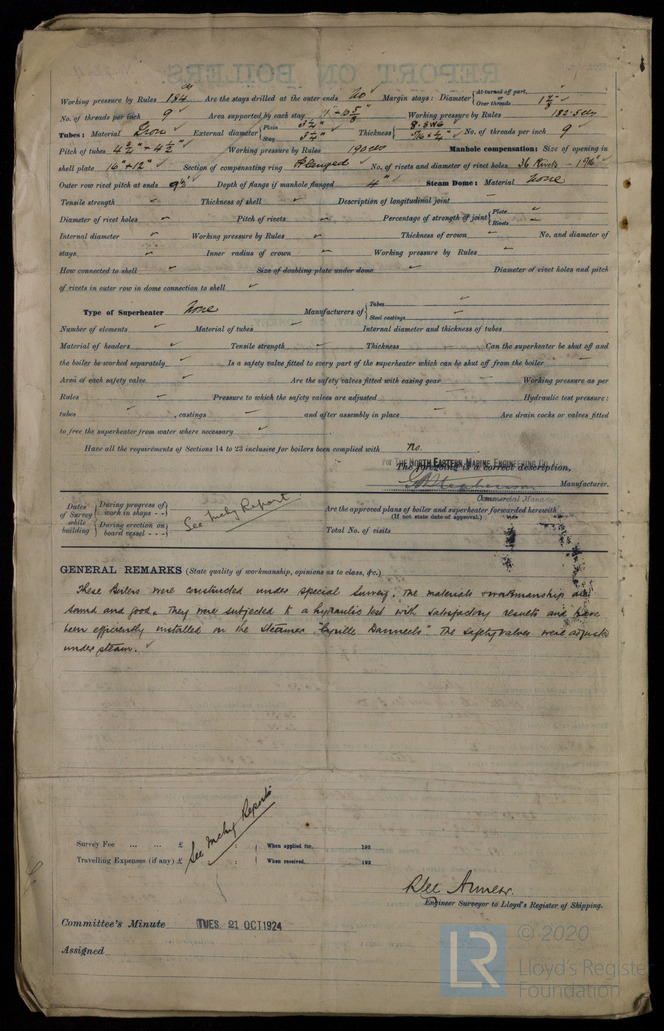 Working pressure by Rules 184 Are the stays drilled at the outer ends No Margin stays: Diameter { At turned off part, or Over threads
No. of threads per inch 9 Area supported by each stay Working pressure by Rules
Tubes: Material Iron External diameter { Plain 3 1/4" Stay 3 1/4" Thickness { 8 SWG No. of threads per inch 9
Pitch of tubes Working pressure by Rules 190 Manhole compensation: Size of opening in
shell plate 16" × 12" Section of compensating ring Flanged No. of rivets and diameter of rivet holes 36 Rivets
Outer row rivet pitch at ends Depth of flange if manhole flanged 4" Steam Dome: Material None
Tensile strength Thickness of shell Description of longitudinal joint
Diameter of rivet holes Pitch of rivets Percentage of strength of joint { Plate Rivets
Internal diameter Working pressure by Rules Thickness of crown No. and diameter of
stays Inner radius of crown Working pressure by Rules
How connected to shell Size of doubling plate under dome Diameter of rivet holes and pitch
of rivets in outer row in dome connection to shell
Type of Superheater None Manufacturers of { Tubes Steel castings
Number of elements Material of tubes Internal diameter and thickness of tubes
Material of headers Tensile strength Thickness Can the superheater be shut off and
the boiler be worked separately Is a safety valve fitted to every part of the superheater which can be shut off from the boiler
Area of each safety valve Are the safety valves fitted with easing gear Working pressure as per
Rules Pressure to which the safety valves are adjusted Hydraulic test pressure:
tubes , castings and after assembly in place Are drain cocks or valves fitted
to free the superheater from water where necessary
Have all the requirements of Sections 14 to 23 inclusive for boilers been complied with
For THE NORTH EASTERN MARINE ENGINEERING Co.
The foregoing is a correct description,
Manufacturer.
Commercial Manager
Dates of Survey while building { During progress of work in shops - - During erection on board vessel - - - See Mchy Report Are the approved plans of boiler and superheater forwarded herewith
(If not state date of approval.)
Total No. of visits
GENERAL REMARKS (State quality of workmanship, opinions as to class, &c.)
These Boilers were constructed under special survey. The materials & workmanship are
sound and good. They were subjected to a hydraulic test with satisfactory results and have
been efficiently installed on the steamer "Cyrille Danneels". The safety valves were adjusted
under steam.
Survey Fee ... ... £ : : When applied for, 192
See Mchy Report
Travelling Expenses (if any) £ : : When received, 192
Engineer Surveyor to Lloyd's Register of Shipping.
Committee's Minute TUES. 21 OCT 1924
Assigned
© 2020
LR Lloyd's Register
Foundation